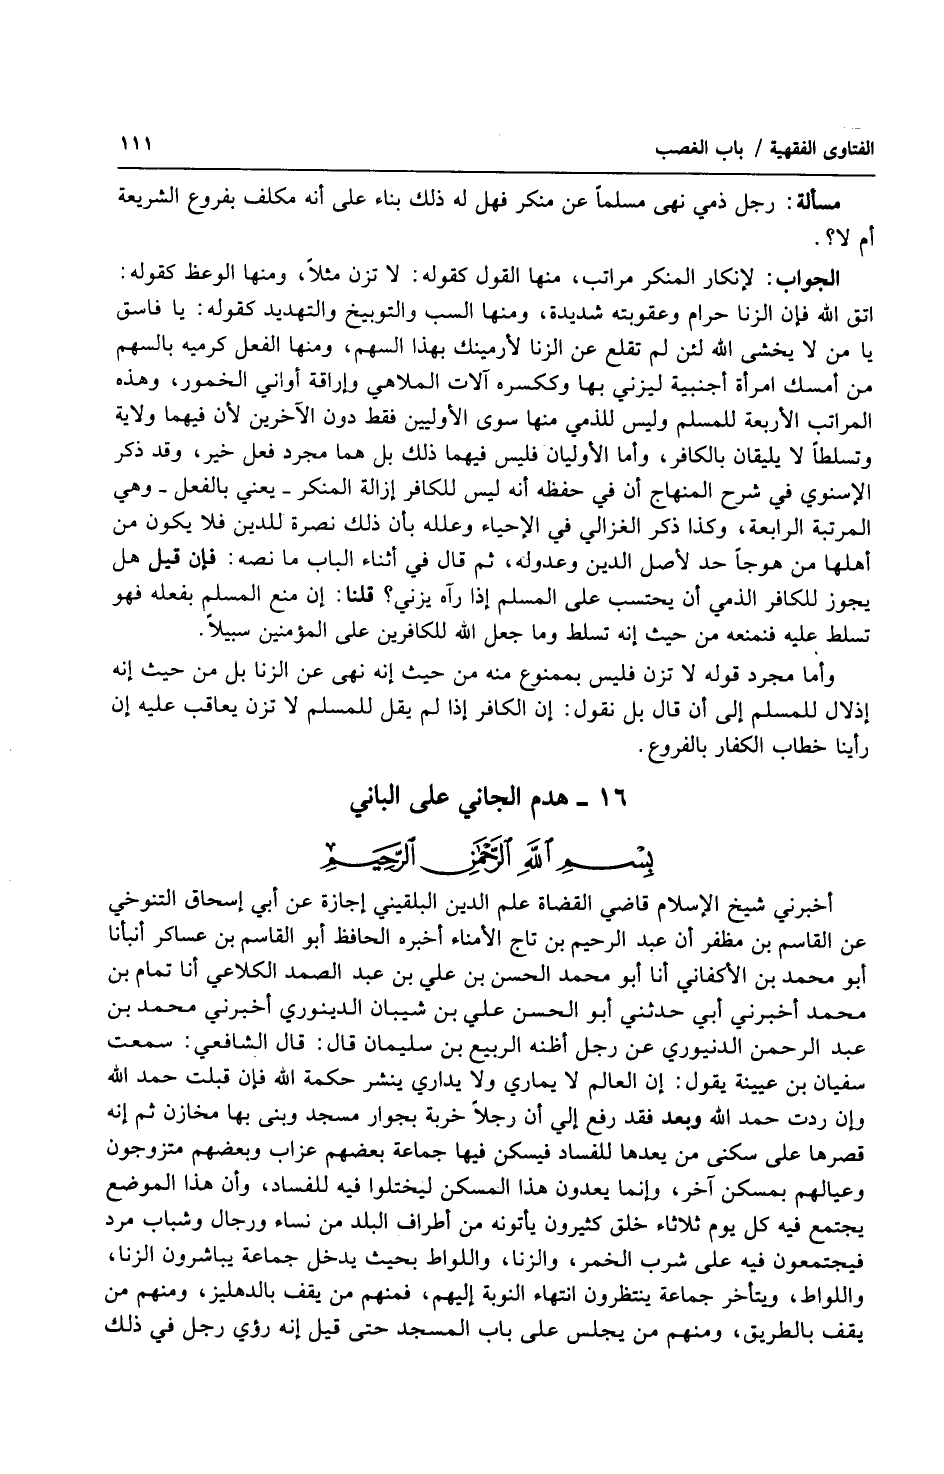 الفتاوى الفقهية / باب الغصب ١١١
مسألة: رجل ذمي نهى مسلماً عن منكر فهل له ذلك بناء على أنه مكلف بفروع الشريعة
أم لا؟.
الجواب: لإنكار المنكر مراتب، منها القول كقوله: لا تزن مثلاً، ومنها الوعظ كقوله:
اتق الله فإن الزنا حرام وعقوبته شديدة، ومنها السب والتوبيخ والتهديد كقوله: يا فاسق
يا من لا يخشى الله لئن لم تقلع عن الزنا لأرمينك بهذا السهم، ومنها الفعل كرميه بالسهم
من أمسك امرأة أجنبية ليزني بها وككسره آلات الملاهي وإراقة أواني الخمور، وهذه
المراتب الأربعة للمسلم وليس للذمي منها سوى الأوليين فقط دون الآخرين لأن فيهما ولاية
وتسلطاً لا يليقان بالكافر، وأما الأوليان فليس فيهما ذلك بل هما مجرد فعل خير، وقد ذكر
الإسنوي في شرح المنهاج أن في حفظه أنه ليس للكافر إزالة المنكر ـ يعني بالفعل ـ وهي
المرتبة الرابعة، وكذا ذكر الغزالي في الإحياء وعلله بأن ذلك نصرة للدين فلا يكون من
أهلها من هوجاً حد لأصل الدين وعدوله، ثم قال في أثناء الباب ما نصه: فإن قيل هل
يجوز للكافر الذمي أن يحتسب على المسلم إذا رآه يزني؟ قلنا: إن منع المسلم بفعله فهو
تسلط عليه فنمنعه من حيث إنه تسلط وما جعل الله للكافرين على المؤمنين سبيلاً.
وأما مجرد قوله لا تزن فليس بممنوع منه من حيث إنه نهى عن الزنا بل من حيث إنه
إذلال للمسلم إلى أن قال بل نقول: إن الكافر إذا لم يقل للمسلم لا تزن يعاقب عليه إن
رأينا خطاب الكفار بالفروع.
١٦ ـ هدم الجاني على الباني
بسم الله الرحمن الرحيم
أخبرني شيخ الإسلام قاضي القضاة علم الدين البلقيني إجازة عن أبي إسحاق التنوخي
عن القاسم بن مظفر أن عبد الرحيم بن تاج الأمناء أخبره الحافظ أبو القاسم بن عساكر أنبأنا
أبو محمد بن الأكفاني أنا أبو محمد الحسن بن علي بن عبد الصمد الكلاعي أنا تمام بن
محمد أخبرني أبي حدثني أبو الحسن علي بن شيبان الدينوري أخبرني محمد بن
عبد الرحمن الدنيوري عن رجل أظنه الربيع بن سليمان قال: قال الشافعي: سمعت
سفيان بن عيينة يقول: إن العالم لا يماري ولا يداري ينشر حكمة الله فإن قبلت حمد الله
وإن ردت حمد الله وبعد فقد رفع إلي أن رجلاً خربة بجوار مسجد وبنى بها مخازن ثم إنه
قصرها على سكنى من يعدها للفساد فيسكن فيها جماعة بعضهم عزاب وبعضهم متزوجون
وعيالهم بمسكن آخر، وإنما يعدون هذا المسكن ليختلوا فيه للفساد، وأن هذا الموضع
يجتمع فيه كل يوم ثلاثاء خلق كثيرون يأتونه من أطراف البلد من نساء ورجال وشباب مرد
فيجتمعون فيه على شرب الخمر، والزنا، واللواط بحيث يدخل جماعة يباشرون الزنا،
واللواط، ويتأخر جماعة ينتظرون انتهاء النوبة إليهم، فمنهم من يقف بالدهليز، ومنهم من
يقف بالطريق، ومنهم من يجلس على باب المسجد حتى قيل إنه رؤي رجل في ذلك